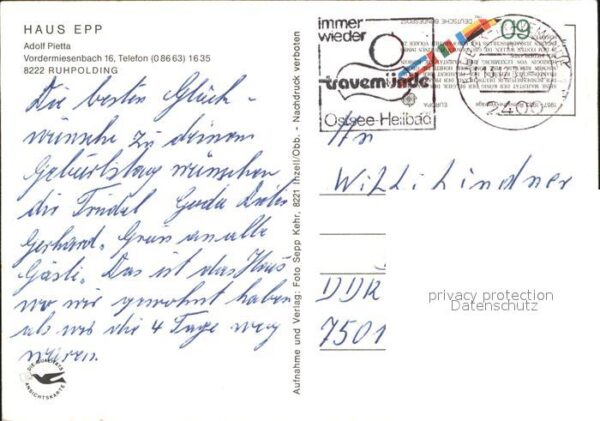 HAUS EPP
Adolf Pietta
Vordermiesenbach 16, Telefon (0 86 63) 16 35
8222 RUHPOLDING
Die besten Glück-
wünsche zu deinem
Geburtstag wünschen
dir Trudel Gerda Dieter
Gerhard. Grüß an alle
Gäste. Das ist das Haus
wo wir gewohnt haben
als wir die 4 Tage weg
waren.
DIE QUALITÄTS
ANSICHTSKARTE
Aufnahme und Verlag: Foto Sepp Kehr, 8221 Inzell/Obb. - Nachdruck verboten
immer
wieder
travemünde
Ostsee-Heilbad
DEUTSCHE BUNDESPOST
60
EUROPA
2400
An
Willi Lindner
DDR
7501
privacy protection
Datenschutz